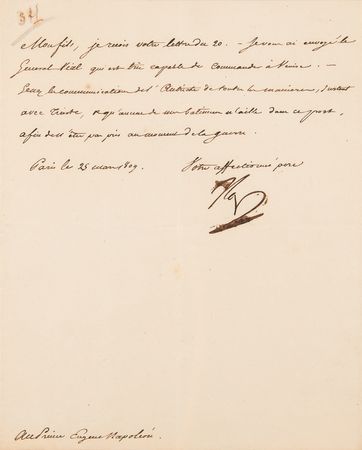 Mon fils, je reçois votre lettre du 20. - Je vous ai envoyé le
Général Vial qui est très capable de commander à Venise. -
communication de l'Autriche de toutes les manières, surtout
avec Trieste, & qu'aucun de mes bâtimens n'aille dans ce port,
afin de n'être pas pris au moment de la guerre.
Paris le 25 mars 1809. Votre affectionné père
Nap
Au Prince Eugène Napoléon.